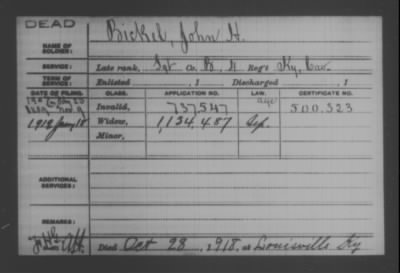 DEAD
NAME OF SOLDIER: Bickel, John H.
SERVICE: Late rank, Sgt Co. B, 4 Reg't Ky. Cav.
TERM OF SERVICE: Enlisted , 1 Discharged , 1
DATE OF FILING. CLASS. APPLICATION NO. LAW. CERTIFICATE NO.
Invalid, 737547 age 500,323
1918 Widow, 1,134,487
Minor,
ADDITIONAL SERVICES:
REMARKS:
Died Oct 28, 1918, at Louisville Ky